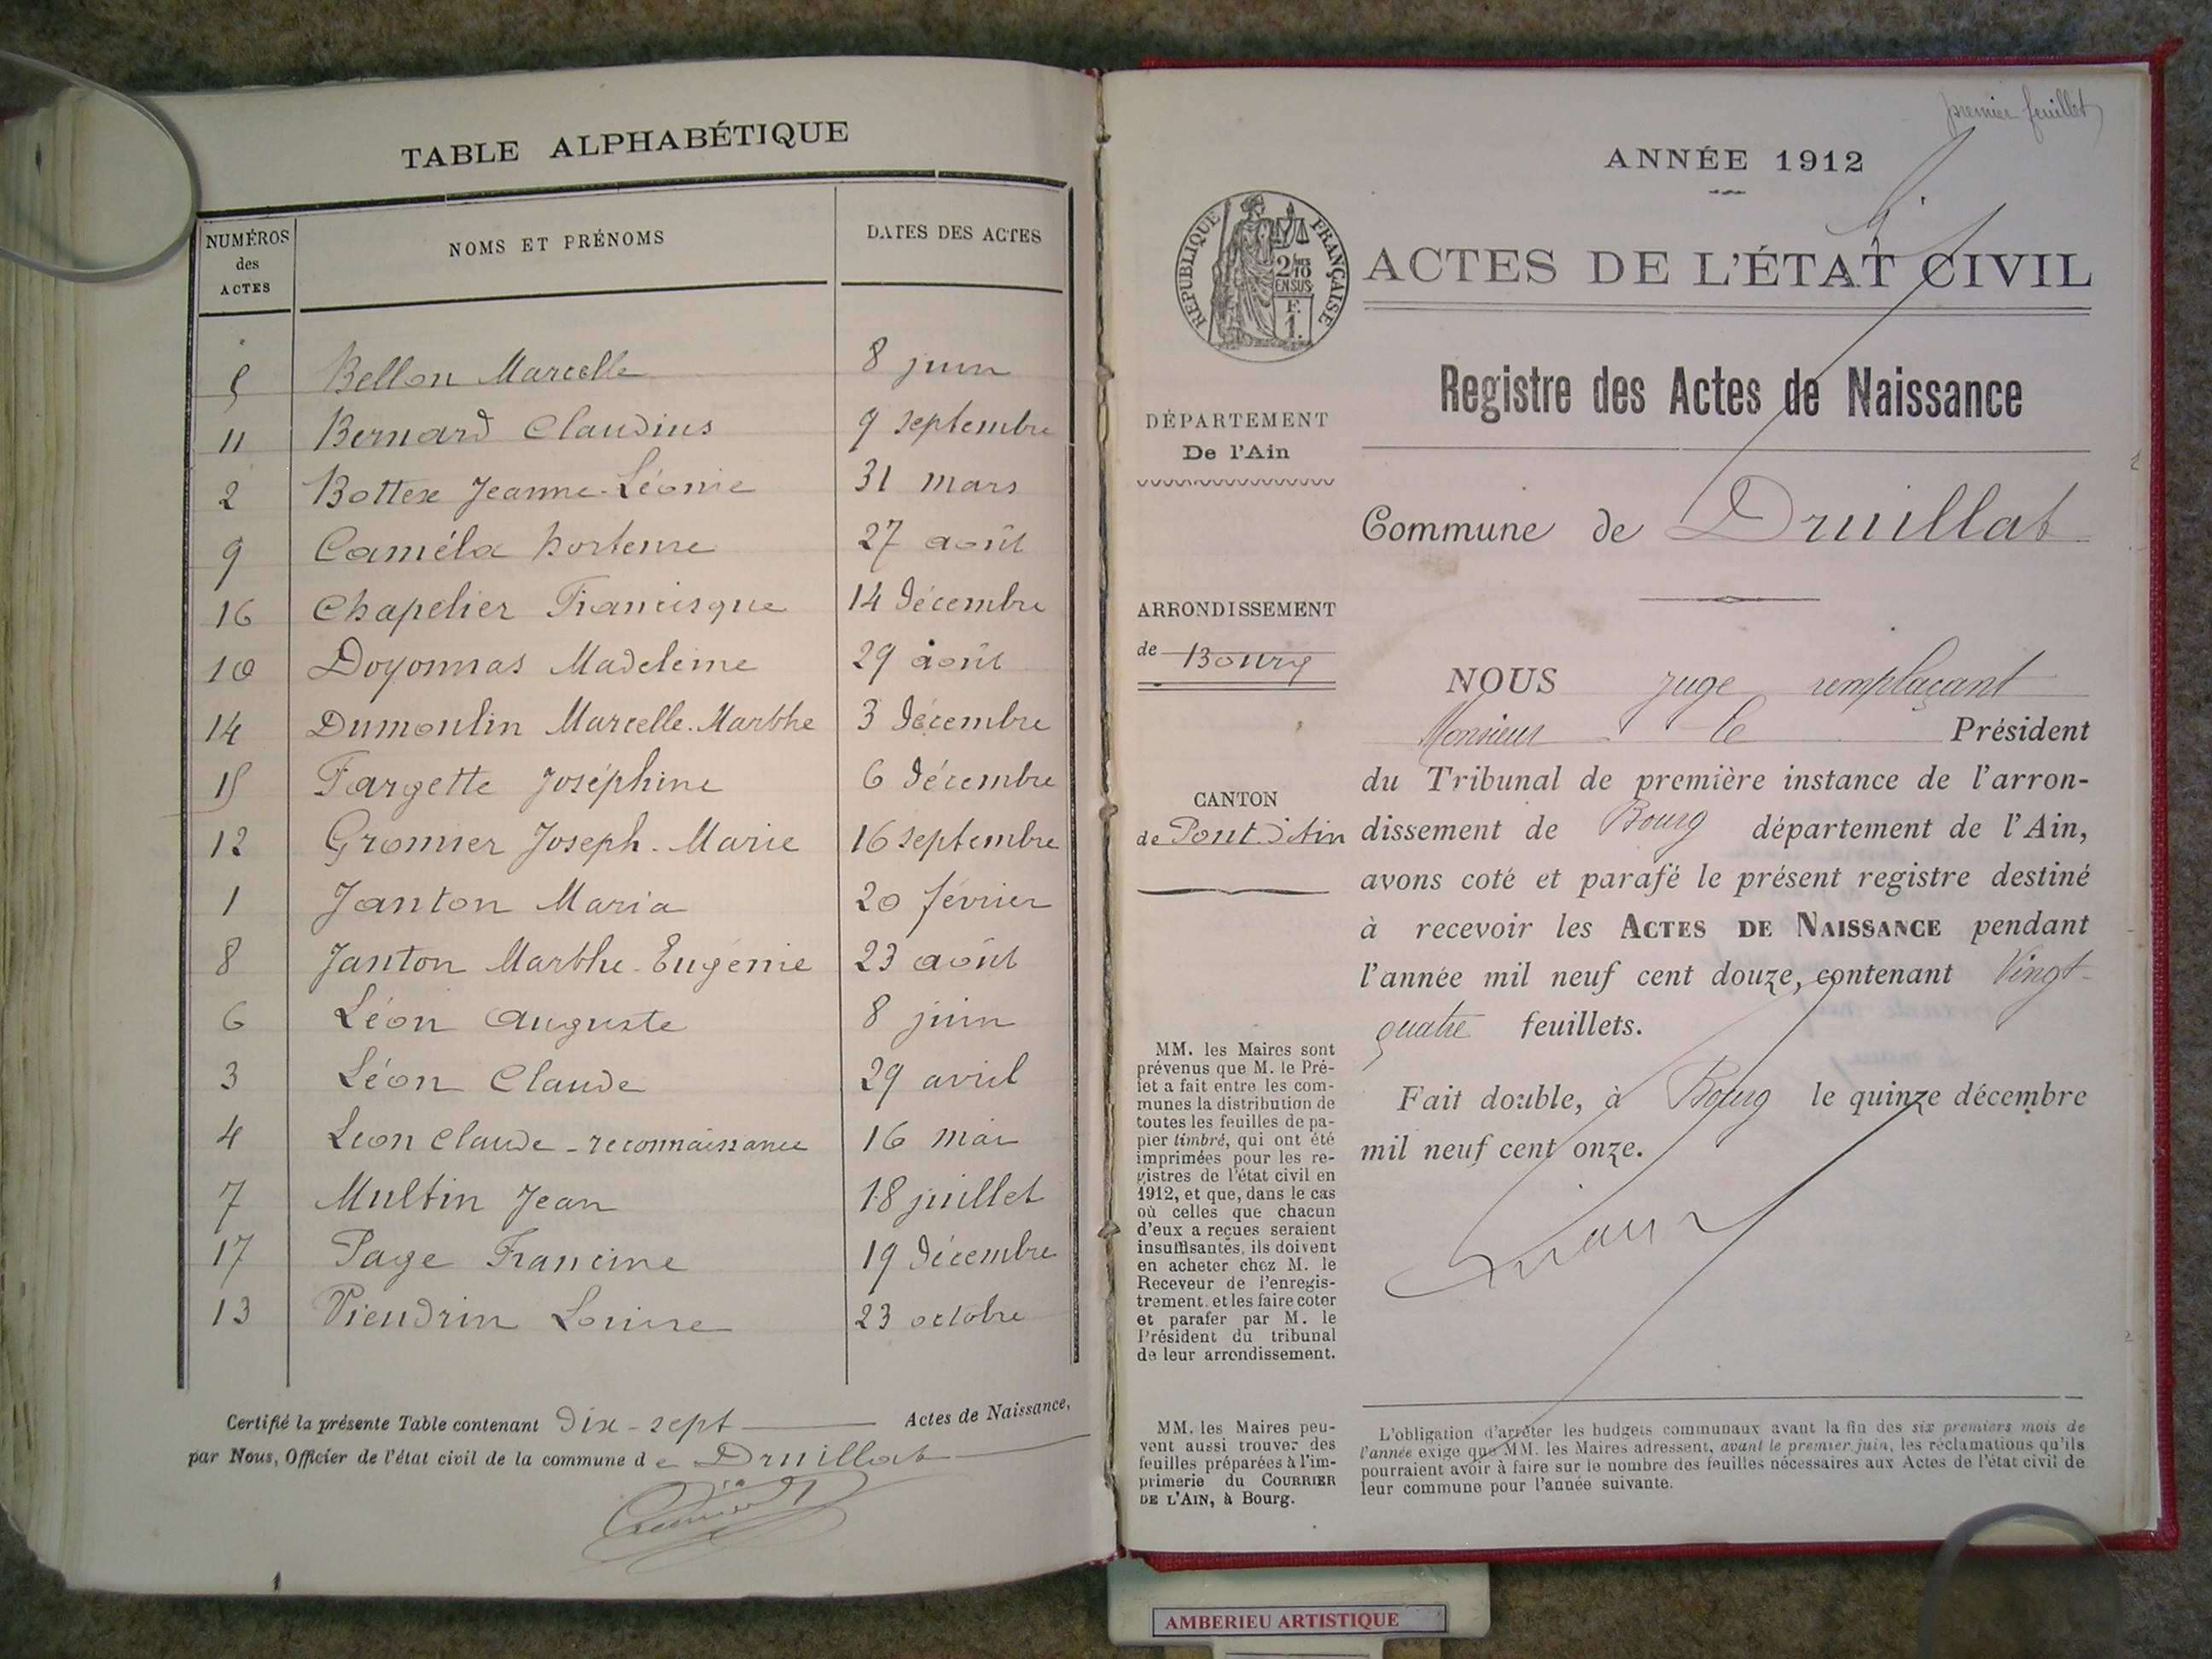 TABLE ALPHABÉTIQUE
NUMÉROS
des
ACTES
NOMS ET PRÉNOMS
DATES DES ACTES
5 Bellon Marcelle 8 juin
11 Bernard Claudius 9 septembre
2 Bottex Jeanne-Léonie 31 mars
9 Caméla hortense 27 août
16 Chapelier Francisque 14 décembre
10 Doyonnas Madeleine 29 août
14 Dumoulin Marcelle-Marthe 3 décembre
15 Fargette Joséphine 6 décembre
12 Gromier Joseph-Marie 16 septembre
1 Janton Maria 20 février
8 Janton Marthe-Eugénie 23 août
6 Léon Auguste 8 juin
3 Léon Claude 29 avril
4 Léon Claude - reconnaissance 16 mai
7 Multin Jean 18 juillet
17 Page Francine 19 décembre
13 Vieudrin Louise 23 octobre
Certifié la présente Table contenant dix-sept Actes de Naissance,
par Nous, Officier de l'état civil de la commune de Druillat
premier feuillet
ANNÉE 1912
RÉPUBLIQUE FRANÇAISE
2/10
EN SUS
F.
1.
ACTES DE L'ÉTAT CIVIL
Registre des Actes de Naissance
DÉPARTEMENT
De l'Ain
Commune de Druillat
ARRONDISSEMENT
de Bourg
CANTON
de Pont d'Ain
NOUS juge remplaçant
Monsieur le Président
du Tribunal de première instance de l'arron-
dissement de Bourg département de l'Ain,
avons coté et parafé le présent registre destiné
à recevoir les ACTES DE NAISSANCE pendant
l'année mil neuf cent douze, contenant Vingt-
quatre feuillets.
Fait double, à Bourg le quinze décembre
mil neuf cent onze.
MM. les Maires sont
prévenus que M. le Pré-
fet a fait entre les com-
munes la distribution de
toutes les feuilles de pa-
pier timbré, qui ont été
imprimées pour les re-
gistres de l'état civil en
1912, et que, dans le cas
où celles que chacun
d'eux a reçues seraient
insuffisantes, ils doivent
en acheter chez M. le
Receveur de l'enregis-
trement. et les faire coter
et parafer par M. le
Président du tribunal
de leur arrondissement.
MM. les Maires peu-
vent aussi trouver des
feuilles préparées à l'im-
primerie du COURRIER
DE L'AIN, à Bourg.
L'obligation d'arrêter les budgets communaux avant la fin des six premiers mois de
l'année exige que MM. les Maires adressent, avant le premier juin, les réclamations qu'ils
pourraient avoir à faire sur le nombre des feuilles nécessaires aux Actes de l'état civil de
leur commune pour l'année suivante.
AMBERIEU ARTISTIQUE